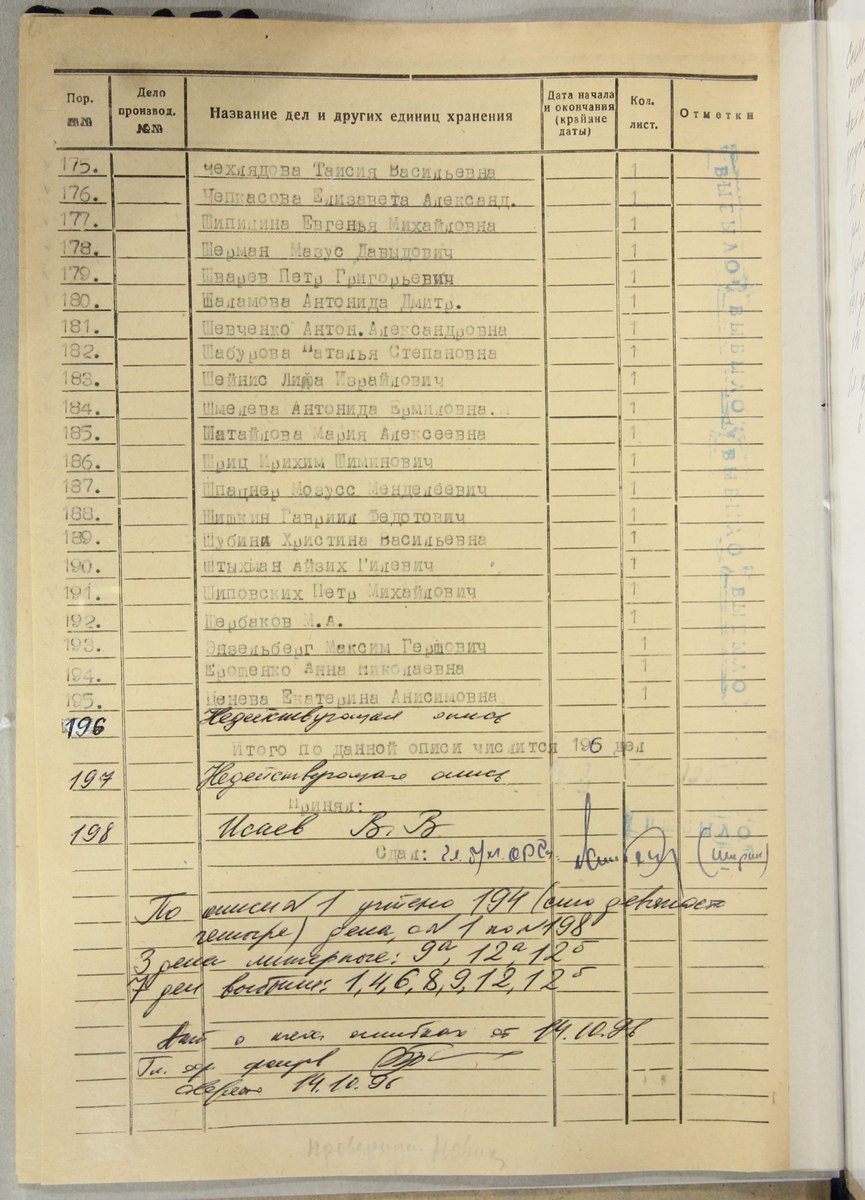 Пор. №№ Дело производ. №№ Название дел и других единиц хранения Дата начала и окончания (крайние даты) Кол. лист. Отметки
175. Чехлядова Таисия Васильевна 1
176. Чепкасова Елизавета Александ. 1
177. Шипицина Евгенья Михайловна 1
178. Шерман Мазус Давыдович 1
179. Шварев Петр Григорьевич 1
180. Шаламова Антонида Дмитр. 1
181. Шевченко Антон.Александровна 1
182. Шабурова Наталья Степановна 1
183. Шейнис Лифа Израйлович 1
184. Шмелева Антонида Ермиловна. 1
185. Шатайлова Мария Алексеевна 1
186. Шриц Ирихим Шиминович 1
187. Шпацнер Мозусс Менделеевич 1
188. Шишкин Гавриил Федотович 1
189. Шубиня Христина Васильевна 1
190. Штыхман Айзих Гилевич 1
191. Шиповских Петр Михайлович 1
192. Щербаков М.А. 1
193. Энзельберг Максим Гершович 1
194. Ерошенко Анна Николаевна 1
195. Ценева Екатерина Анисимовна 1
196 Недействующая опись
Итого по данной описи числится 196 дел
197 Недействующая опись
Принял:
198 Исаев В. В
Сдал:
По описи №1 учтено 194 (сто девяносто
четыре) дела, с №1 по №198
3 дела литерные: 9а, 12а, 12б
7 дел выбыли: 1,4,6,8,9,12,12б
Акт о тех. ошибках от 14.10.96
Гл. хр. фондов
14.10.96
ВЫБЫЛО
ВЫБЫЛО
ВЫБЫЛО
ВЫБЫЛО